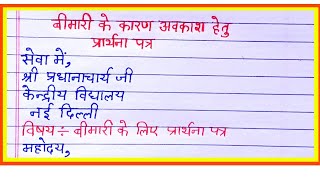 बीमारी के कारण अवकाश हेतु
प्रार्थना पत्र
सेवा में,
श्री प्रधानाचार्य जी
केन्द्रीय विद्यालय
नई दिल्ली
विषय ÷ बीमारी के लिए प्रार्थना पत्र
महोदय,